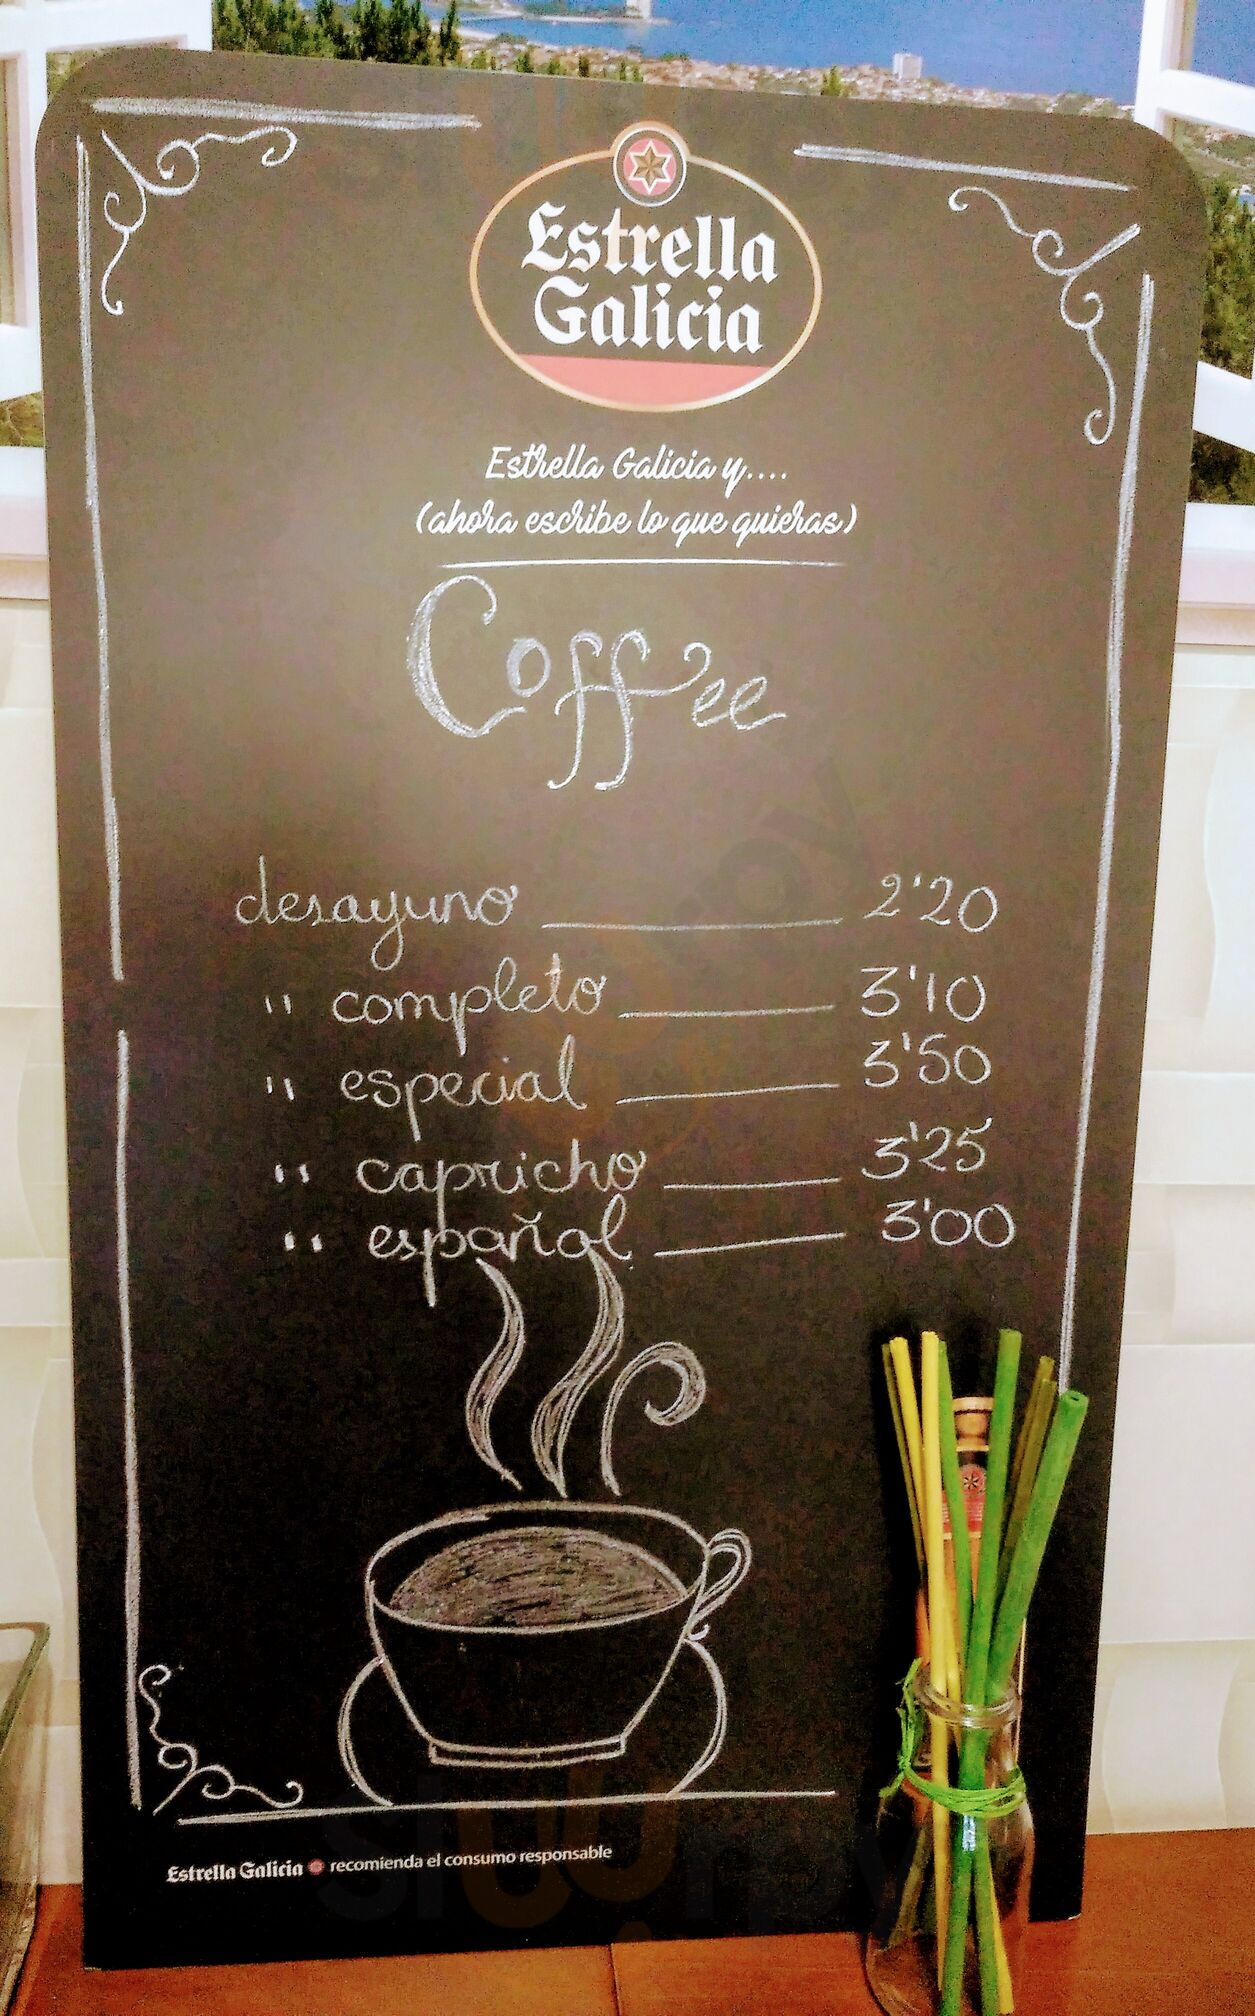 Estrella
Galicia
Estrella Galicia y....
(ahora escribe lo que quieras)
Coffee
desayuno 2'20
" completo 3'10
" especial 3'50
" capricho 3'25
" español 3'00
Estrella Galicia recomienda el consumo responsable
sluurpy